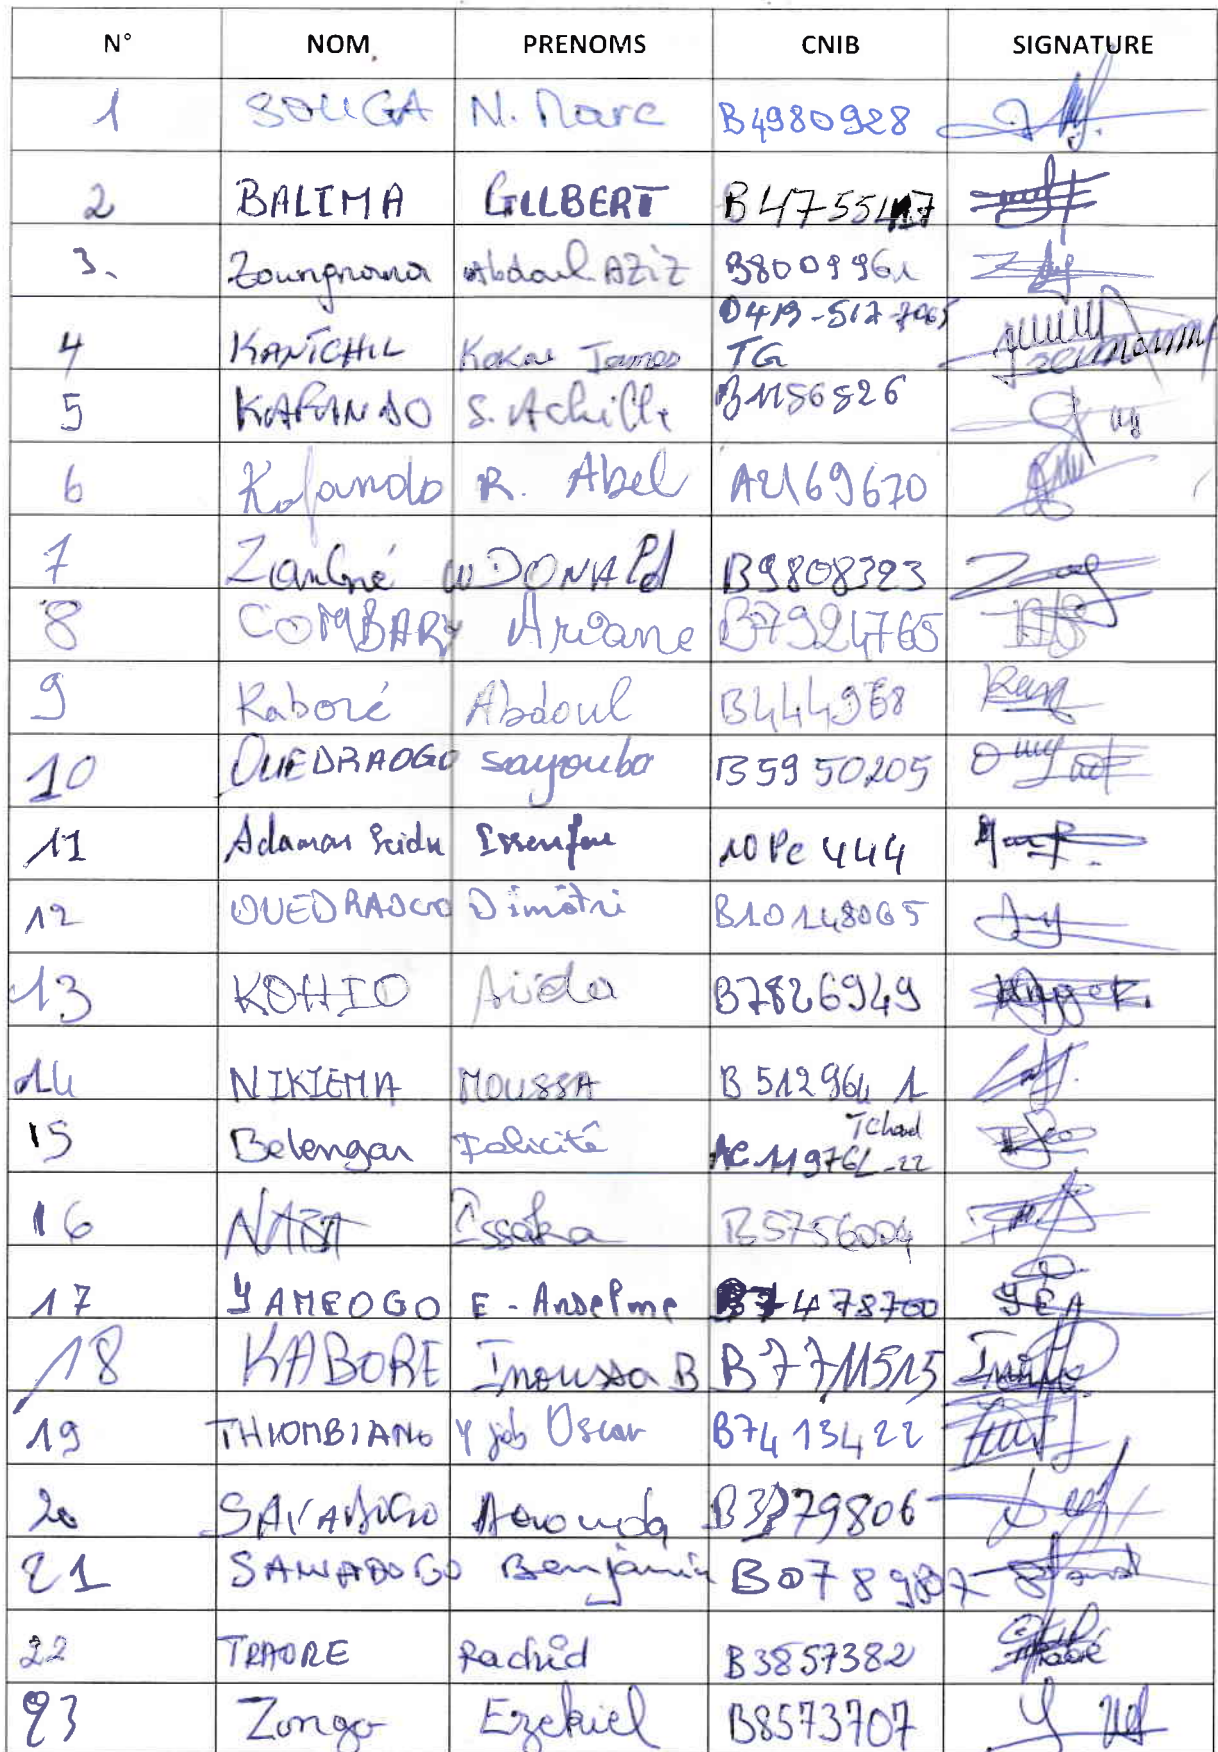 N° NOM PRENOMS CNIB SIGNATURE
1 SOUGA N. Marc B4980928
2 BALIMA GILBERT B4755417
3. Zoungrana Abdoul AZIZ B8009961
0419-512-7065
4 KANTCHIL Kokou James TG
5 KAFANDO S. Achille B1156526
6 Kafando R. Abel A2169670
7 Zambné W DONALd B9808323
8 COMBARY Ariane B7924765
9 Kaboré Abdoul B444968
10 OUEDRAOGO Sayouba B5950205
11 Adamou Seidu 10 Pc 444
12 OUEDRAOGO Dimitri B10148065
13 KOHIO Aïda B7826949
14 NIKIEMA MOUSSA B5129641
Tchad
15 Belengar Felicité AC119761-22
16 NABA Issaka B5756004
17 YAMEOGO E-Anselme B7478700
18 KABORE Inoussa B B7711515
19 THIOMBIANO Y job Oscar B7413422
20 SAVADOGO Arouna B3279806
21 SAWADOGO Benjamin B0789807
22 TRAORE Rachid B3857382
23 Zongo Ezekiel B8573707